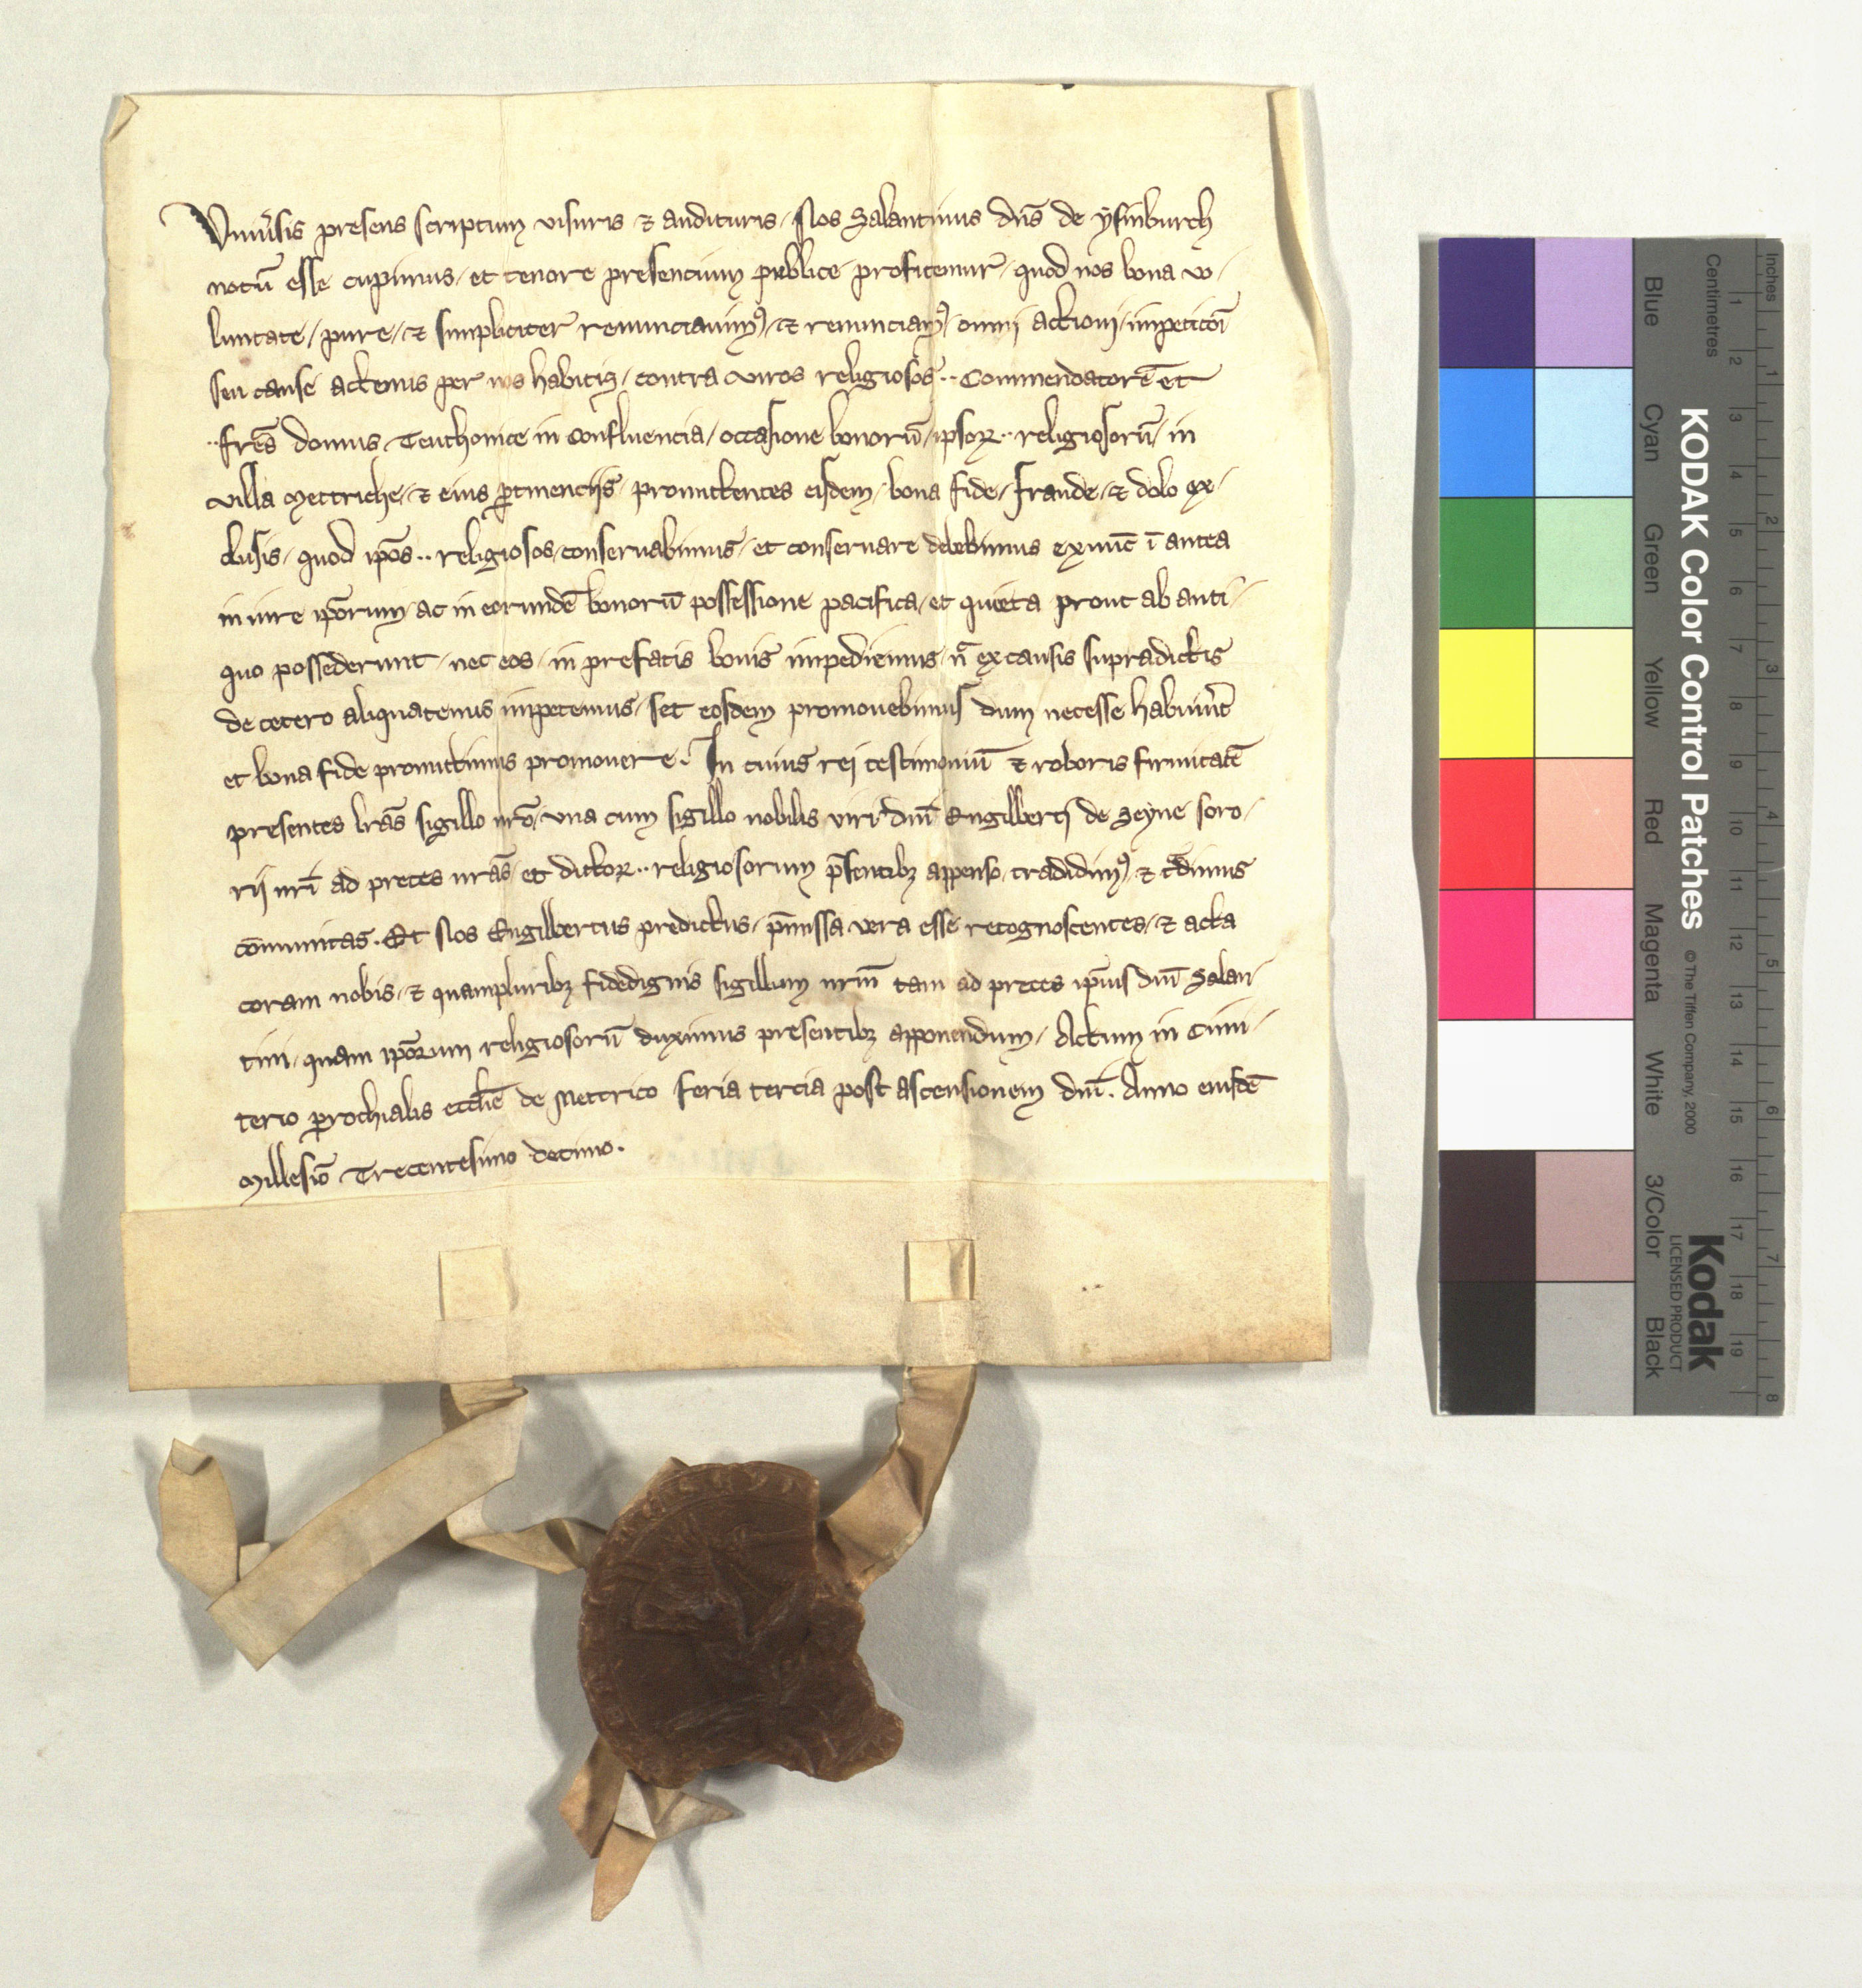 Vniu͛sis presens scriptum visuris ⁊ audituris / Nos Salantinus dn̄s de ẏsinburch
notū esse cupimus / et tenore presencium publice profitemur / quod nos bona vo /
luntate / pure / ⁊ simpliciter renunciauimꝰ / ⁊ renunciamꝰ / omni actioni / impeticōi
seu cause actenus per nos habitis / contra viros religiosos ·· Commendatorē et
·· frēs domus Teuthonice in Confluencia / occasione bonorū / ipsoꝝ ·· religiosorū / in
villa Mettriche / ⁊ eius ꝑtinenciis / promittentes eisdem / bona fide / fraude / ⁊ dolo ex /
clusis / quod ip̄os ·· religiosos / conseruabimus / et conseruare debebimus exnūc ī antea
in iure ip̄orum / ac in eorundē bonorū possessione pacifica / et quieta prout ab anti /
quo possederunt / nec eos / in prefatis bonis impediemus / n̄ ex causis supradictis
de cetero aliquatenus impetemus / set eosdem promouebimus dum necesse habuer̄t
et bona fide promittimus promouere. In cuius rej testimoniū ⁊ roboris firmitatē
presentes lrās sigillo nr̄o / vna cum sigillo nobilis viri dn̄i Engilberti de Seyne soro /
rij nr̄i ad preces nrās / et dictoꝝ ·· religiosorum p̄sentibꝫ appenso / tradidimꝰ / ⁊ t͛dimus
cōmunitas. Et Nos Engilbertus predictus / p̄missa vera esse recognoscentes / ⁊ acta
coram nobis / ⁊ quampluribꝫ fidedignis sigillum nr̄m tam ad preces ip̄ius dn̄i Salan /
tini / quam ip̄orum religiosorū duximus presentibꝫ apponendum / Actum in Cimi /
terio ꝑrochialis eccl̄ie de Mettrico feria tercia post ascensionem dn̄i. Anno eiusdē
Millesīo Trecentesimo decimo.
KODAK Color Control Patches © The Tiffen Company, 2000
Kodak
LICENSED PRODUCT
Blue Cyan Green Yellow Red Magenta White 3/Color Black
Centimetres 1 2 3 4 5 6 7 8 9 10 11 12 13 14 15 16 17 18 19
Inches 1 2 3 4 5 6 7 8